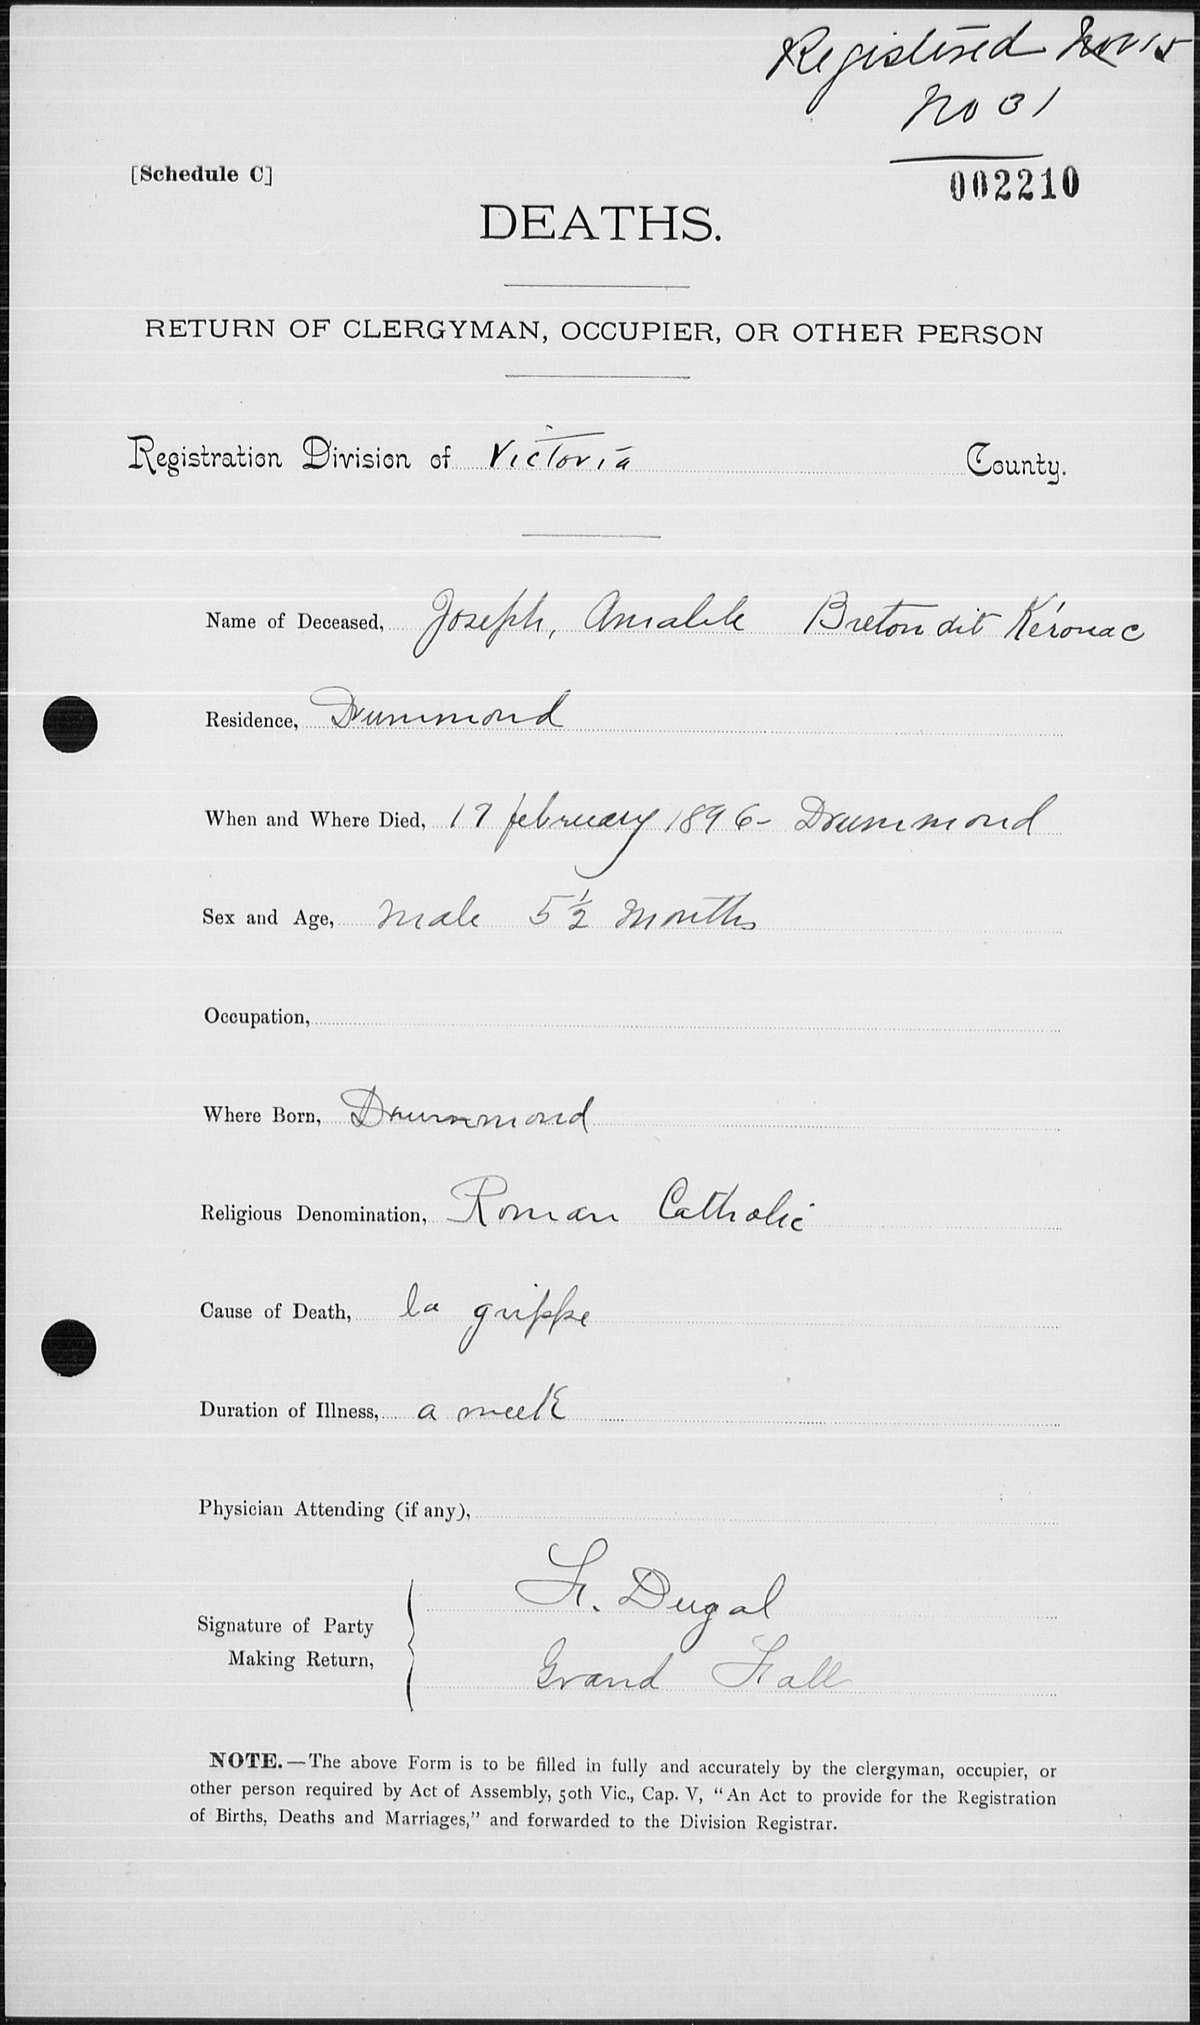 Registered Nov 15
No 31
002210
[Schedule C]
DEATHS.
RETURN OF CLERGYMAN, OCCUPIER, OR OTHER PERSON
Registration Division of Victoria County.
Name of Deceased, Joseph, Amable Breton dit Kérouac
Residence, Drummond
When and Where Died, 17 february 1896 - Drummond
Sex and Age, Male 5½ Months
Occupation,
Where Born, Drummond
Religious Denomination, Roman Catholic
Cause of Death, la grippe
Duration of Illness, a week
Physician Attending (if any),
Signature of Party Making Return,
Fr. Dugal
Grand Fall
NOTE.—The above Form is to be filled in fully and accurately by the clergyman, occupier, or
other person required by Act of Assembly, 50th Vic., Cap. V, “An Act to provide for the Registration
of Births, Deaths and Marriages,” and forwarded to the Division Registrar.